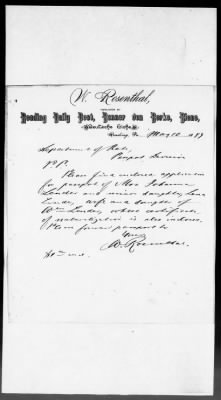 W. Rosenthal,
PUBLISHER OF
Reading Daily Post, Banner von Berks, Biene,
Deutsche Eiche
Reading, Pa., May 10 1889
Department of State,
Passport Division
Please find inclosed application
for passport of Mrs. Johanna
Lander and minor daughter, Lena
Lander, wife and daughter of
Wm Lander, whose certificate
of naturalization is also inclosed.
Please forward passport to
Yours
W. Rosenthal.